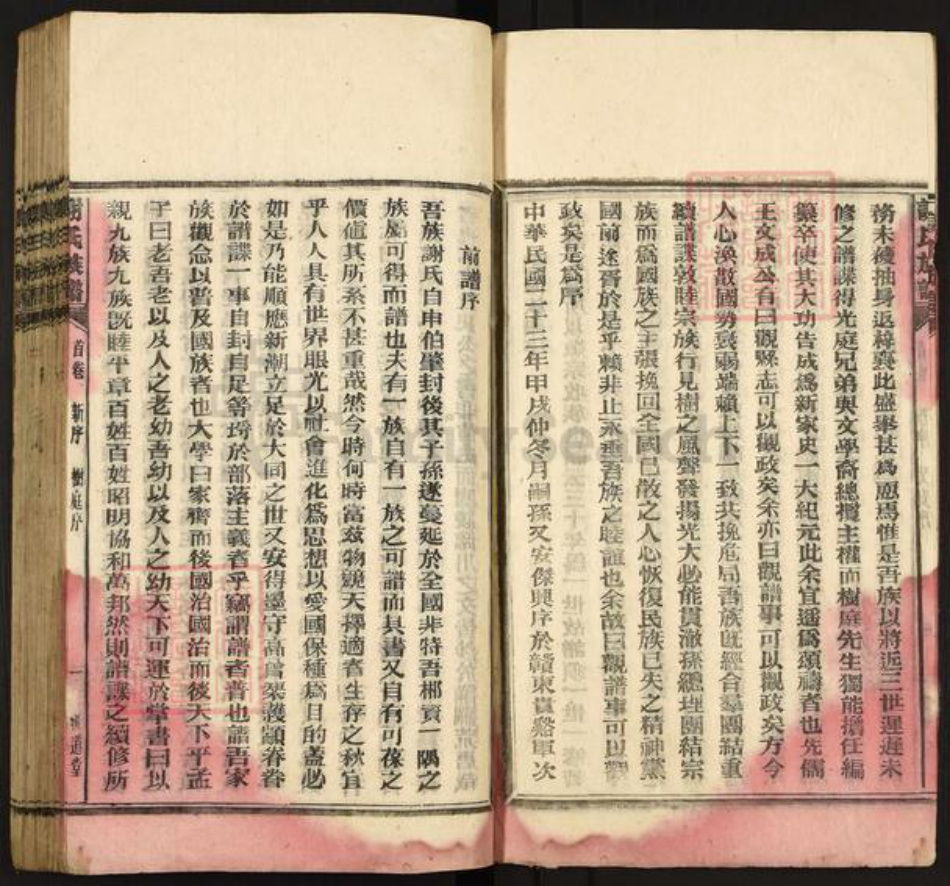 務未獲抽身返梓襄此盛舉甚為恧焉惟是吾族以將近三世遲遲未
修之譜諜得光庭兄弟與文學裔總攬主權而樹庭先生獨能擔任編
纂卒使其大功告成為新家史一大紀元此余宜遥為頌禱者也先儒
王文成公有曰觀縣志可以觀政矣余亦曰觀譜事可以觀政矣方今
人心渙散國勢衰弱端賴上下一致共挽危局吾族既經合羣團結重
續譜諜敦睦宗族行見樹之風聲發揚光大必能貫澈孫總理團結宗
族而為國族之主張挽回全國已散之人心恢復民族已失之精神黨
國前途胥於是乎賴非止永垂吾族之睦誼也余故曰觀譜事可以觀
政矣是為序
中華民國二十三年甲戌仲冬月嗣孫又安傑興序於贛東貴谿軍次
謝氏族譜
前譜序
吾族謝氏自申伯肇封後其子孫遂蔓延於全國非特吾郴資一隅之
族屬可得而譜也夫有一族自有一族之可譜而具書又自有可葆之
價值其所系不甚重哉然今時何時富茲物競天擇適者生存之秋宜
乎人人具有世界眼光以社會進化為思想以愛國保種為目的蓋必
如是乃能順應新潮立足於大同之世又安得墨守高曾榘矱顓眷眷
於譜諜一事自封自足等埒於部落主義者乎竊謂譜者普也譜吾家
族觀念以普及國族者也大學曰家齊而後國治國治而後天下平孟
子曰老吾老以及人之老幼吾幼以及人之幼天下可運於掌書曰以
親九族九族既睦平章百姓百姓昭明協和萬邦然則譜諜之續修所
謝氏族譜
首卷 新序 樹庭序 一 道堂